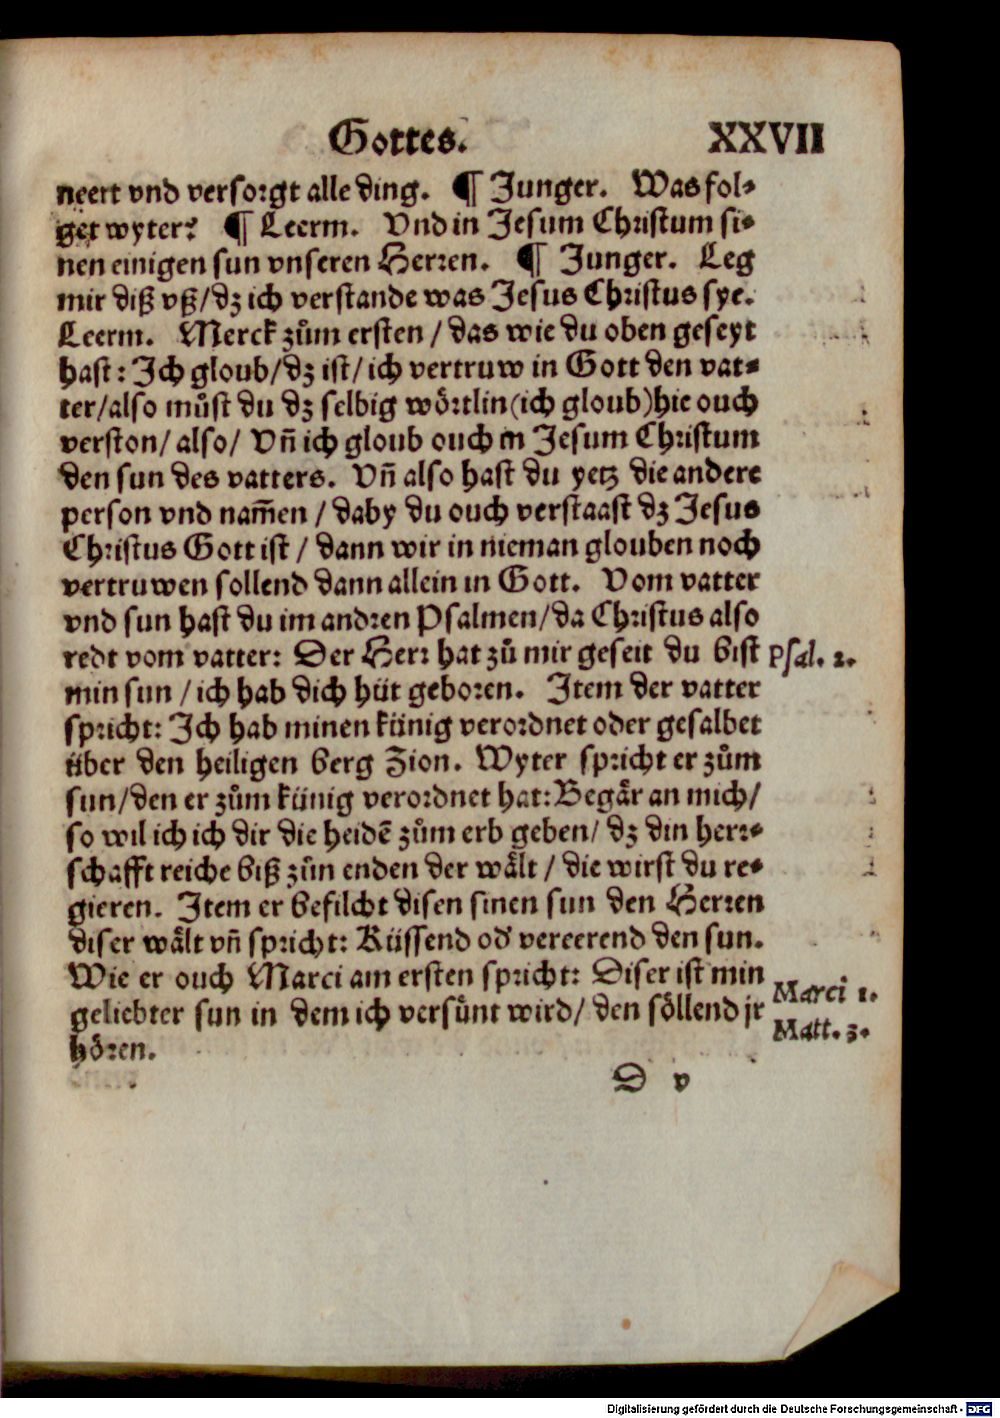 Gottes. XXVII
neert vnd versorgt alle ding. ¶ Junger. Was fol-
get wyter? ¶ Leerm. Vnd in Jesum Christum si-
nen einigen sun vnseren Herren. ¶ Junger. Leg
mir diß vß/dz ich verstande was Jesus Christus sye.
Leerm. Merck zům ersten / das wie du oben geseyt
hast: Ich gloub/dz ist/ich vertruw in Gott den vat-
ter/also můst du dz selbig wörtlin(ich gloub)hie ouch
verston/also/ Vñ ich gloub ouch in Jesum Christum
den sun des vatters. Vñ also hast du yetz die andere
person vnd nam̃en / daby du ouch verstaast dz Jesus
Christus Gott ist / dann wir in nieman glouben noch
vertruwen sollend dann allein in Gott. Vom vatter
vnd sun hast du im andren Psalmen/da Christus also
redt vom vatter: Der Herr hat zů mir geseit du bist
Psal. 2.
min sun / ich hab dich hüt geboren. Item der vatter
spricht: Ich hab minen künig verordnet oder gesalbet
über den heiligen berg Zion. Wyter spricht er zům
sun/den er zům künig verordnet hat:Begär an mich/
so wil ich ich dir die heidē zům erb geben/ dz din herr-
schafft reiche biß zůn enden der wält / die wirst du re-
gieren. Item er befilcht disen sinen sun den Herren
diser wält vñ spricht: Küssend od' vereerend den sun.
Wie er ouch Marci am ersten spricht: Diser ist min
Marci 1.
geliebter sun in dem ich versünt wird/ den söllend jr
Matt. 3.
hören.
D v
Digitalisierung gefördert durch die Deutsche Forschungsgemeinschaft - DFG